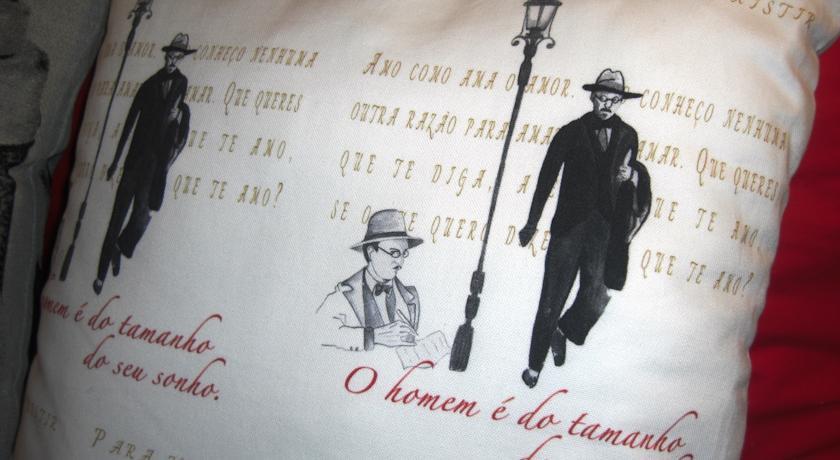 ISTIR
AMOR. CONHEÇO NENHUMA
AMAR. QUE QUERES
UE TE AMO,
QUE TE AMO?
homem é do tamanho
do seu sonho.
AMO COMO AMA O AMOR. CONHEÇO NENHUMA
OUTRA RAZÃO PARA AMA AMAR. QUE QUERES
QUE TE DIGA, A UE TE AMO,
SE O E QUERO DIZE QUE TE AMO?
O homem é do tamanho
PARA